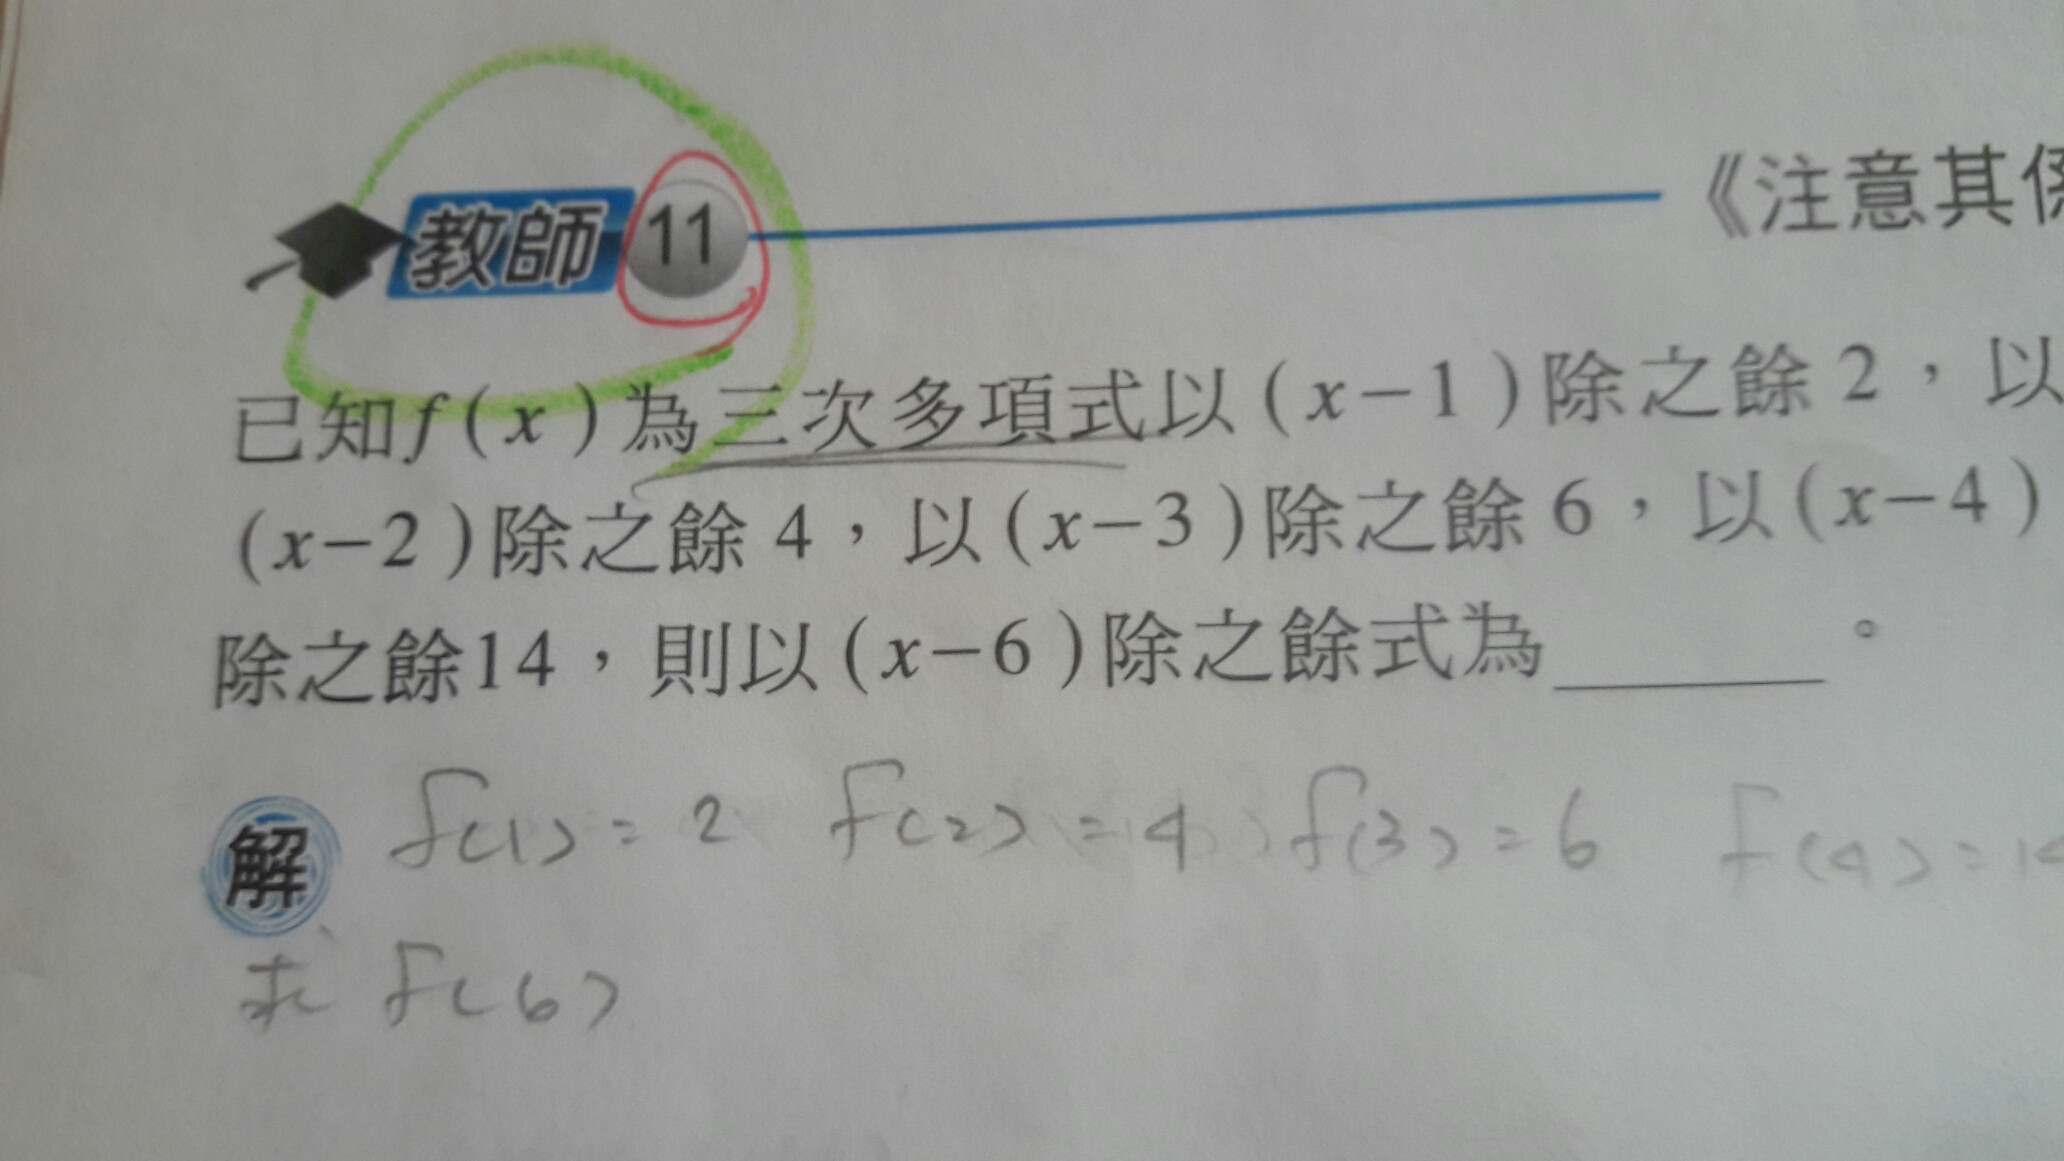 教師 11 《注意其係
已知f(x)為三次多項式以(x-1)除之餘2，以
(x-2)除之餘4，以(x-3)除之餘6，以(x-4)
除之餘14，則以(x-6)除之餘式為______。
解 f(1)=2 f(2)=4 f(3)=6 f(4)=14
求 f(6)